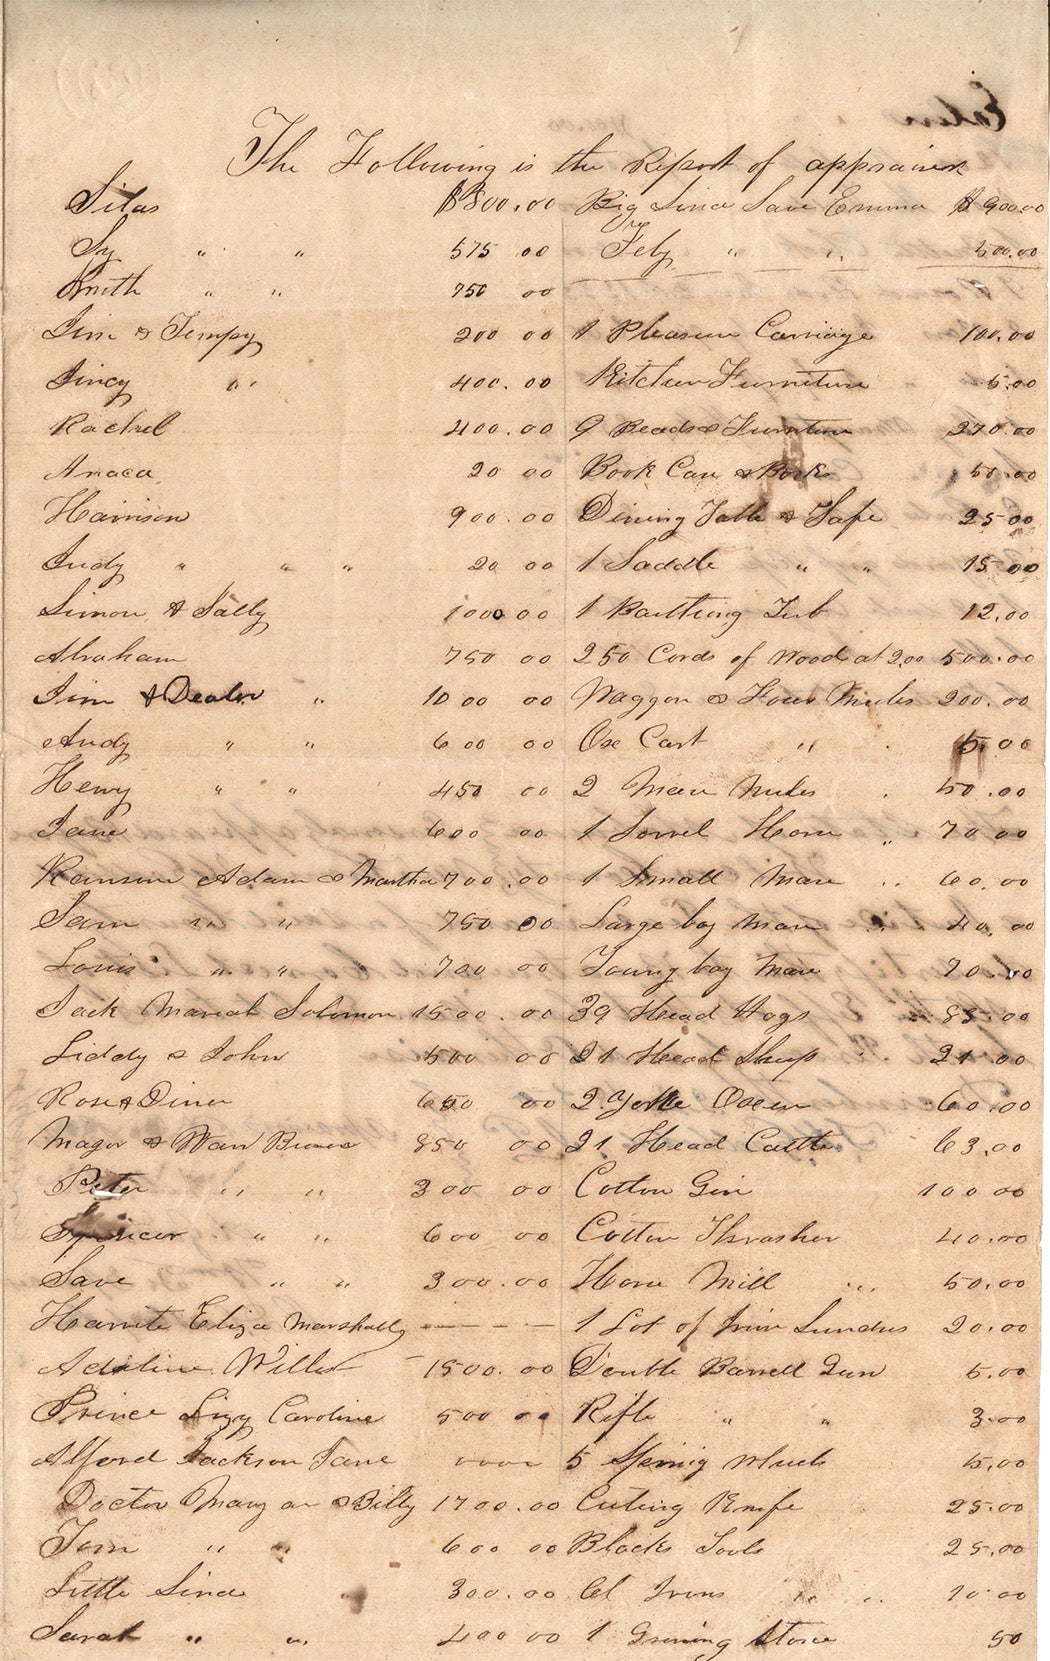 The Following is the Report of appraisers
Silas $800.00
Sy " " 575 00
Smith " " 750 00
Jim & Tempy 200 00
Jincy " " 400.00
Rachel 400.00
Anaca 20 00
Harrison 900.00
Judy " " " 20 00
Simon & Sally 1000 00
Abraham 750 00
Jim & Dealer " 1000 00
Andy " " 600 00
Henry " " 450 00
Jane 600 00
Ransom Adam & Martha 700.00
Sam " " 750 00
Louis " " 700 00
Jack Mariah Solomon 1500.00
Liddy & John 500 00
Rose & Diner 650 00
Magor & 850 00
Peter " " 300 00
Spencer " " 600 00
Save " " 300.00
Harrite Eliza Marshall
Adaline Willis 1500.00
Prince Lizy Caroline 500 00
Alford Jackson Jane
Doctor Mary an & Billy 1700.00
Tom " " 600 00
Little Sina 300.00
Sarah " " 400 00
Big Sina Save Emma $900.00
Feby " " 500.00
1 Pleasure Carriage 100.00
Kitchen Furniture 5.00
9 Beads & Furniture 270.00
Book Case & Books 50.00
Dining Table & Safe 25 00
1 Saddle " " 15 00
1 Baithing Tub 12.00
250 Cords of Wood at 2.00 500.00
Waggon & Four Mules 200.00
Oxe Cart " 5.00
2 Mare Mules 50.00
1 Sorrel Horse " 70.00
1 Small Mare 60.00
Large bay Mare 40.00
Young bay Mare 70.00
39 Head Hogs 85.00
21 Head Sheep 21.00
2 Yorke Oxen 60.00
21 Head Cattle 63.00
Cotton Gin 100 00
Cotton Thrasher 40.00
Horse Mill 50.00
1 Lot of Iron Sundres 20.00
Double Barrell Gun 5.00
Rifle " " 3.00
5 Spining Wheels 5.00
Cuting Knife 25.00
Blacks Tools 25.00
Irons 10.00
1 Grining Stone 50